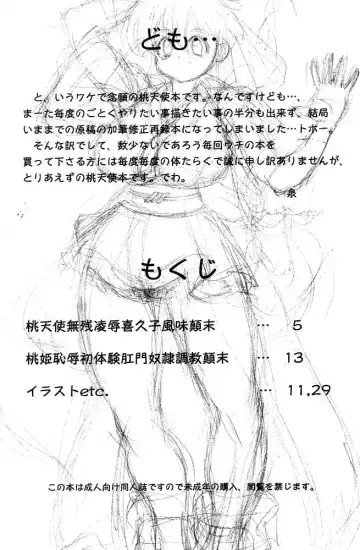 ども…
と、いうワケで念願の桃天使本です。なんですけども…、
まーた毎度のごとくやりたい事描きたい事の半分も出来ず、結局
いままでの原稿の加筆修正再録本になってしまいました…トホー。
そんな訳でして、数少ないであろう毎回ウチの本を
買って下さる方には毎度毎度の体たらくで誠に申し訳ありませんが、
とりあえずの桃天使本です。でわ。
泉
もくじ
桃天使無残凌辱喜久子風味顛末 … 5
桃姫恥辱初体験肛門奴隷調教顛末 … 13
イラストetc. … 11,29
この本は成人向け同人誌ですので未成年の購入、閲覧を禁じます。